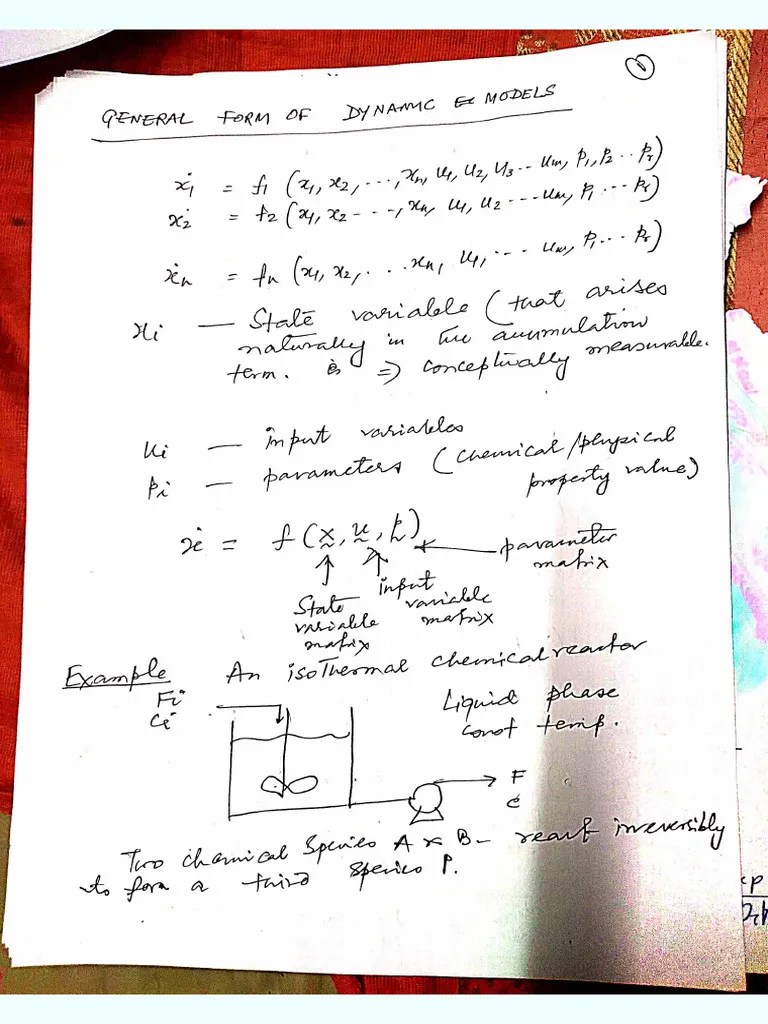 ①
GENERAL FORM OF DYNAMIC MODELS
ẋ₁ = f₁ (x₁, x₂, ..., xₙ, u₁, u₂, u₃ -- uₘ, p₁, p₂ .. pᵣ)
ẋ₂ = f₂ (x₁, x₂ - - -, xₙ, u₁, u₂ --- uₘ, p₁ ... pᵣ)
ẋₙ = fₙ (x₁, x₂, ... xₙ, u₁, --- uₘ, p₁ ... pᵣ)
xᵢ — State variable (that arises
naturally in the accumulation
term. ⇒ conceptually measurable.
uᵢ — input variables
pᵢ — parameters (chemical/physical
property value)
ẋ = f (x, u, p) ← parameter
matrix
↑ ↑
State input
variable variable
matrix matrix
Example An isothermal chemical reactor
Fᵢ
Cᵢ
Liquid phase
const temp.
F
C
Two chemical Species A & B - react irreversibly
to form a third species P.
cp